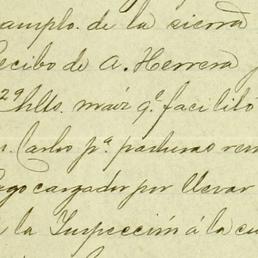 camplo. de la sierra
Recibo de A. Herrera
2ª hlts. maiz q.e facilitó
n. Carlos p.a pasturas rem
Pago cargador por llevar
a la Inspección á la cu